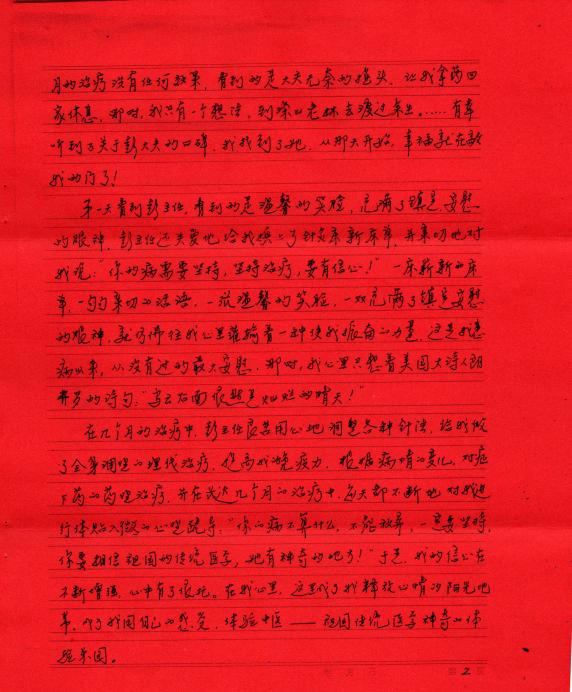 月的治疗没有任何效果，看到的是大夫无奈的摇头，让我拿药回
家休息，那时，我只有一个想法，到深山老林去渡过余生。……有幸
听到了关于彭大夫的口碑，我找到了她，从那天开始，幸福就在敲
我的门了！
第一天看到彭主任，看到的是温馨的笑脸，充满了镇定、安慰
的眼神，彭主任还关爱地给我换上了针灸床新床单，并亲切地对
我说：“你的病需要坚持，坚持治疗，要有信心！”一床崭新的床
单，一句句亲切的话语，一张温馨的笑脸，一双充满了镇定安慰
的眼神，就仿佛往我心里灌输着一种使我振奋的力量，这是我患
病以来，从没有过的最大安慰，那时，我心里只想着美国大诗人朗
费罗的诗句：“乌云后面依然是灿烂的晴天！”
在几个月的治疗中，彭主任良苦用心地调整各种针法，给我做
了全身调理的埋线治疗，提高我免疫力，根据病情的变化，对症
下药的药理治疗，并在长达几个月的治疗中，每天都不断地对我进
行体贴入微的心理疏导：“你的病不算什么，不能放弃，一定要坚持，
你要相信祖国的传统医学，她有神奇的地方！”于是，我的信心在
不断增强，心中有了依托。在我心里，这里成了我释放心情的阳光地
带，成了我用自己的感觉，体验中医——祖国传统医学神奇的体
验乐园。
第2页